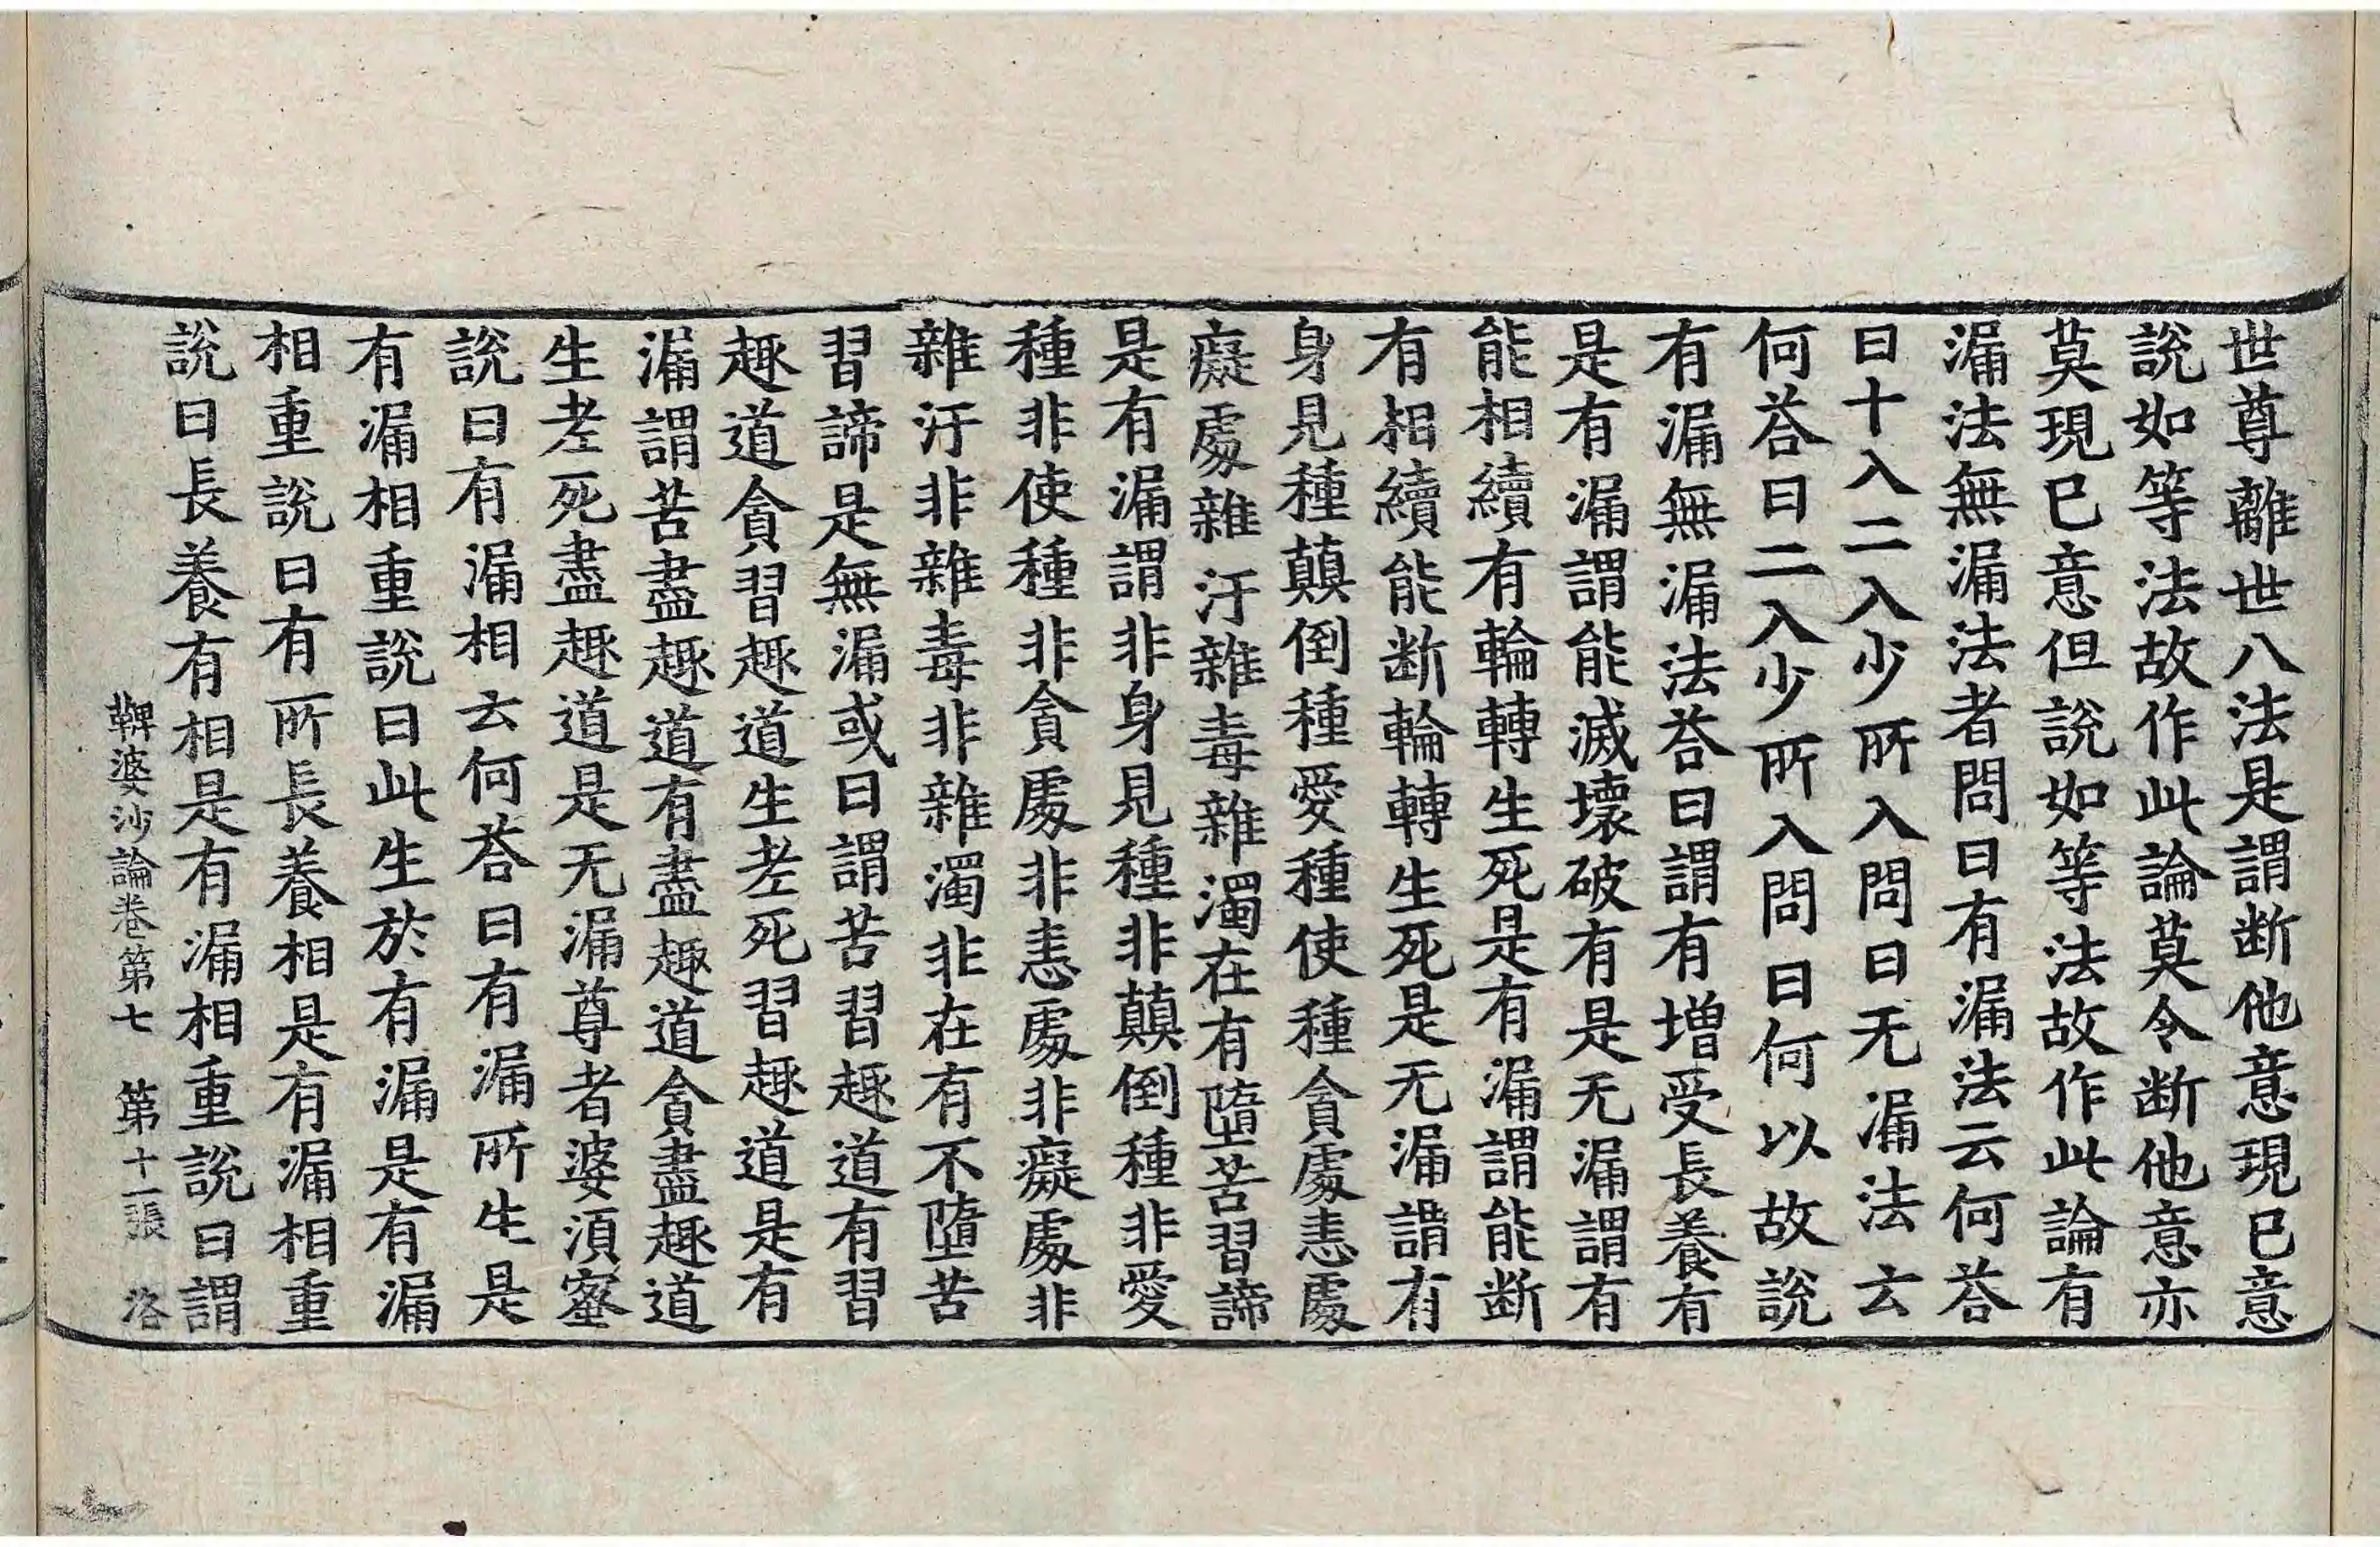 世尊離世八法是謂断他意現已意
說如等法故作此論莫令断他意亦
莫現已意但說如等法故作此論有
漏法無漏法者問曰有漏法云何荅
曰十入二入少所入問曰无漏法云
何荅曰二入少所入問曰何以故說
有漏無漏法荅曰謂有增受長養有
是有漏謂能滅壞破有是无漏謂有
能相續有輪轉生死是有漏謂能断
有相續能断輪轉生死是无漏謂有
身見種顛倒種愛種使種貪處恚處
癡處雜汙雜毒雜濁在有墮苦習諦
是有漏謂非身見種非顛倒種非愛
種非使種非貪處非恚處非癡處非
雜汙非雜毒非雜濁非在有不墮苦
習諦是無漏或曰謂苦習趣道有習
趣道貪習趣道生老死習趣道是有
漏謂苦盡趣道有盡趣道貪盡趣道
生老死盡趣道是无漏尊者婆須蜜
說曰有漏相云何荅曰有漏所生是
有漏相重說曰此生於有漏是有漏
相重說曰有所長養相是有漏相重
說曰長養有相是有漏相重說曰謂
鞞婆沙論卷第七 第十二張 洛